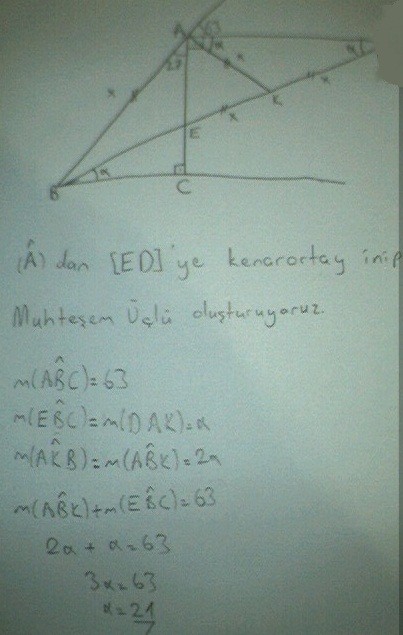 A 63
α α
27 x
x x
x K
E
α
B C
(Â) dan [ED]'ye kenarortay inip
Muhteşem Üçlü oluşturuyoruz.
m(AB̂C)=63
m(EB̂C)=m(DÂK)=α
m(AK̂B)=m(AB̂K)=2α
m(AB̂K)+m(EB̂C)=63
2α + α=63
3α=63
α=21